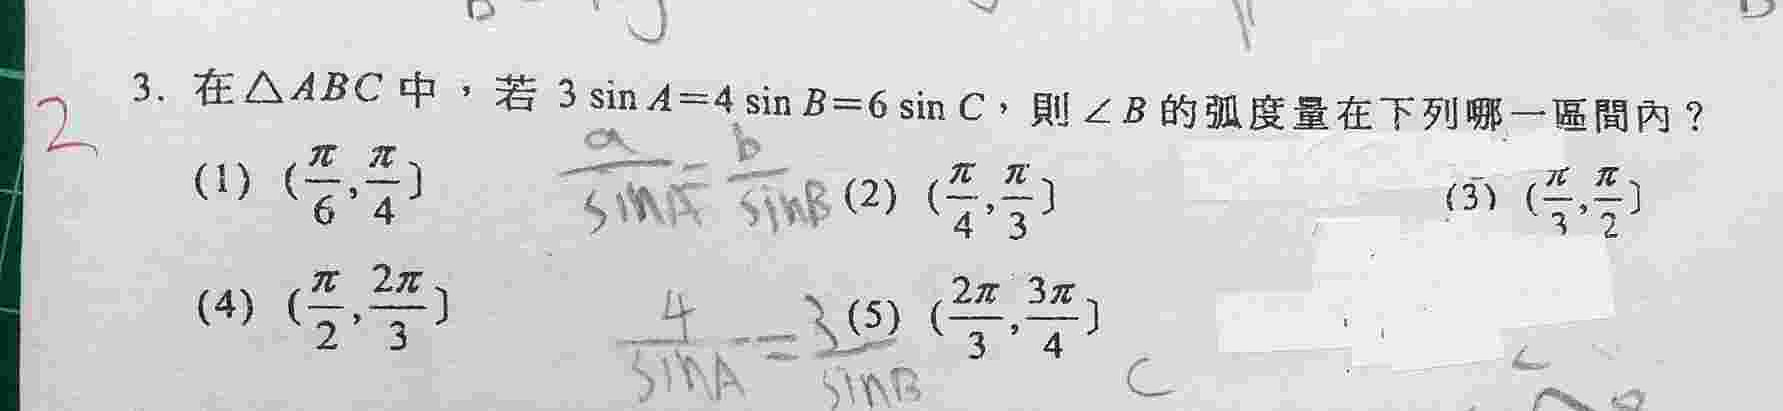 3. 在△ABC 中，若 3 sin A=4 sin B=6 sin C，則∠B 的弧度量在下列哪一區間內？
2
(1) (π/6, π/4]
a/sinA = b/sinB
(2) (π/4, π/3]
(3) (π/3, π/2]
(4) (π/2, 2π/3]
4/sinA = 3/sinB
(5) (2π/3, 3π/4]
C